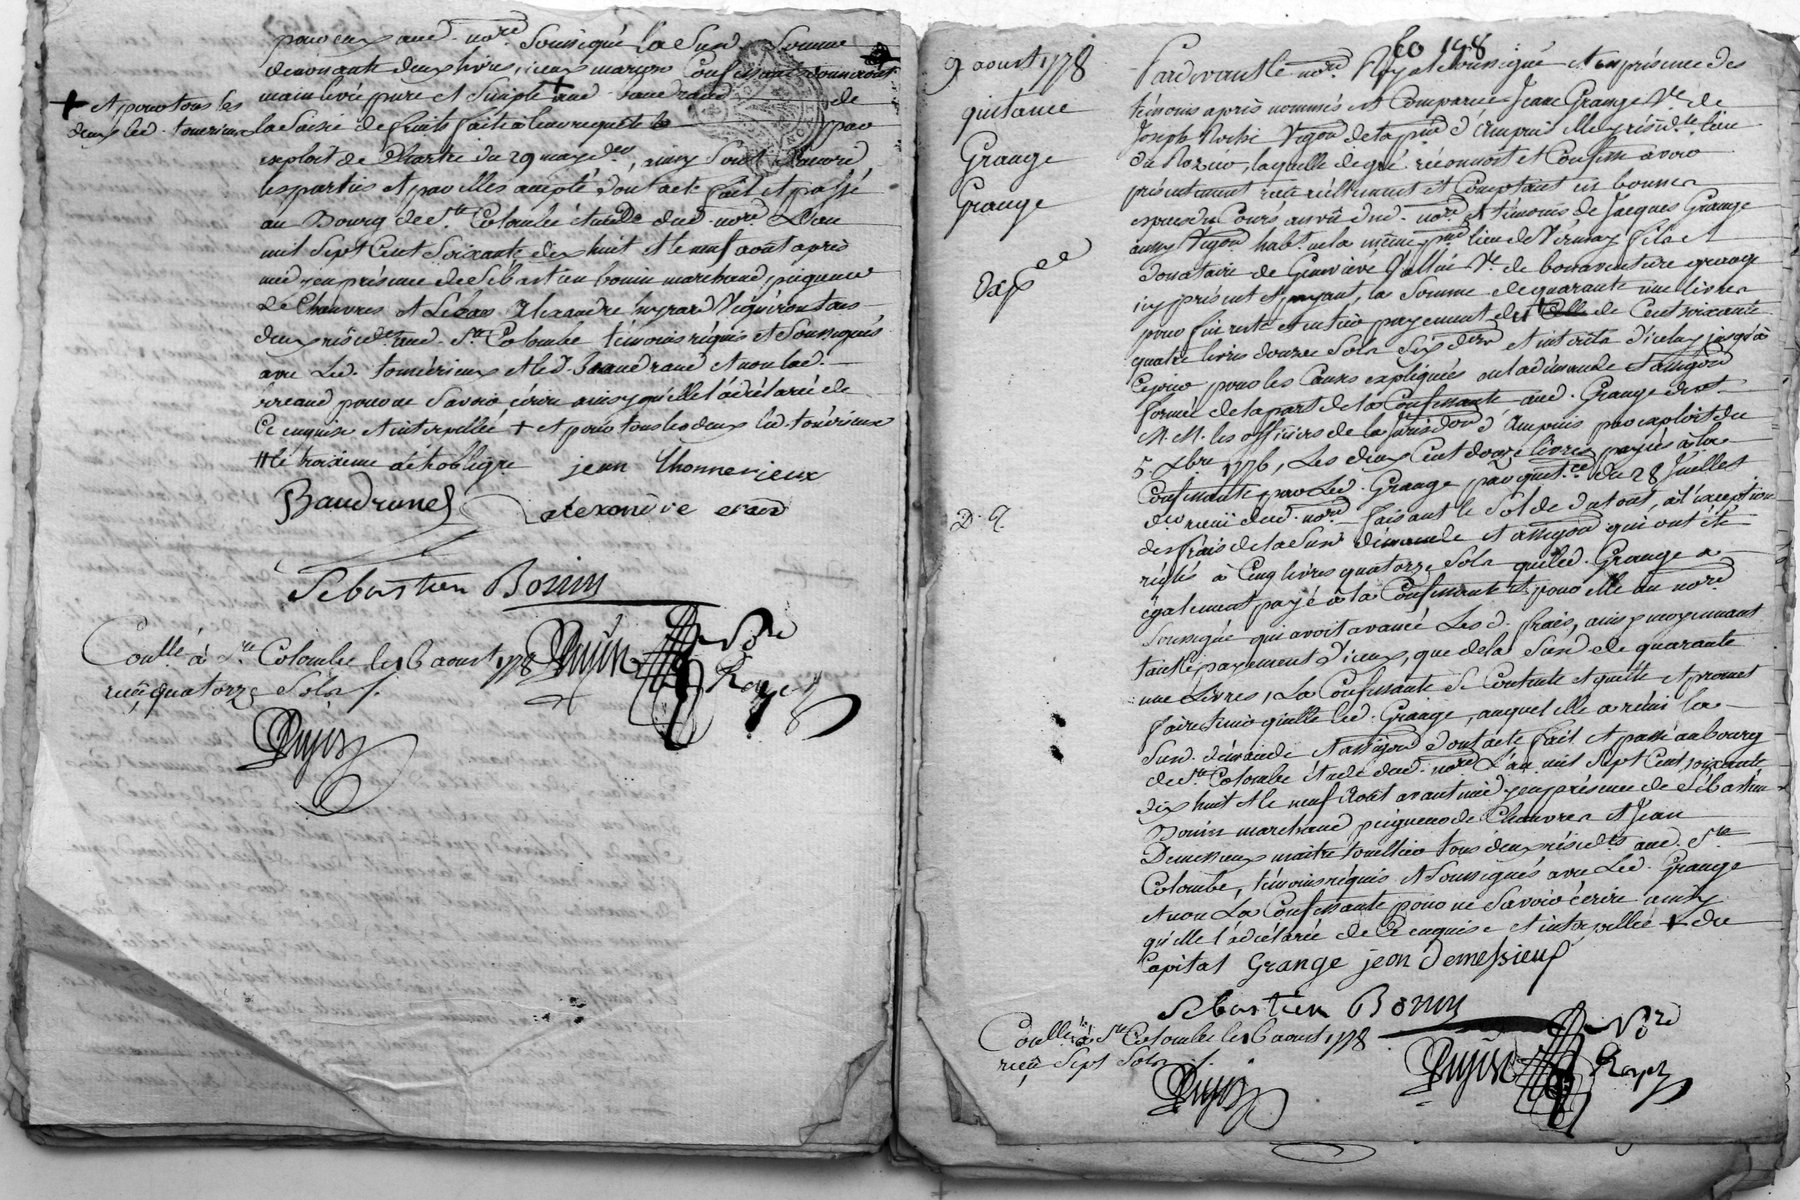 pour eux aud. nore. soussigné la susd. somme
de soixante deux livres, iceux
main levée pure et simple + aud. Baudrand de
+ et pour tous les
deux led. tomerieux
la saisie de fruits faite à leur requete par
exploit de Chartre du 29 may der, ainsy sont d'accord
les parties et par elles accepté dont acte fait et passé
au Bourg de Ste. Colombe étude dud. nore. L'an
mil sept cent soixante dix huit et le neuf aout après
midy en présence de Sébastien bonin marchand peigneur
de Chanvres et de Alexandre heyrard Vigneron tous
deux résidts. aud. Ste. Colombe témoins réquis et soussignés
avec Led. tomérieux et led. Baudrand et non lad.
pour ne savoir écrire ainsy qu'elle l'a déclaré de
ce enquise et interpellée + et pour tous les deux led. tomérieux
jean thomerieux
Baudrand alexandre erard
Sebastien Bonin
Conllé à Ste Colombe le 16 aoust 1778
reçu quatorze sols
Dujon
Dujon Nore
Royal
fo 198
9 aoust 1778
quitance
Grange
Grange
Expée
D. q.
Pardevant le nore. Royal soussigné et en présence des
témoins après nommés est comparue Jeanne Grange Ve. de
Joseph Vigon de la psse d'Ampuis elle y résidte. lieu
du Rozier, laquelle de gré réconnoit et confesse avoir
présentement reçu réellement et comptant en bonnes
espèces du Cours au vû dud. nore. et témoins de Jacques Grange
aussy Vigon habt. en la même psse. lieu de Vérenay fils et
donataire de Genevieve Vallin Ve. de bonaventure grange
icy présent et payant, la somme de quarante une livres
pour fin reste et entier payement de + celle de cent soixante
quatre livres douze sols six ders. et intérêts d'icelle jusqu'à
ce jour pour les causes expliquées en la démande et assigon
formée de la part de la confessante aud. Grange devt.
M. M. les officiers de la jurisdon d'Ampuis par exploit du
5. Xbre 1776, Les deux cent douze livres payés à la
confessante par Led. Grange par quitce. du 28 Juillet
der. reçüe dud. nore. faisant le solde du tout, à l'exception
des frais de la susd. démande et assigon qui ont été
réglés à cinq livres quatorze sols que led. Grange a
également payé à la confessante et pour elle au nore
soussigné qui avoit avancé Les d. frais, ainsy moyennant
tant le payement d'iceux, que de la susd. de quarante
une Livres, La confessante se contente et quitte et promet
faire tenir quitte led. Grange, auquel elle a rémis la
susd. démande et assigon dont acte fait et passé au bourg
de Ste. Colombe étude dud. nore. L'an mil sept cent soixante
dix huit et le neuf Aout avant midy en présence de Sébastien
Bonin marchand peigneur de Chanvres et Jean
Demessieux maitre tonellier tous deux résidts. aud. Ste.
Colombe, témoins réquis et soussignés avec Led. Grange
et non La confessante pour ne savoir écrire ainsy
qu'elle l'a déclaré de ce enquise et interpellée + du
Capital Grange jean Demessieux
Sebastien Bonin
Conllé. à Ste Colombe le 16 aoust 1778
reçu sept sols
Dujon
Dujon Nore
Royal